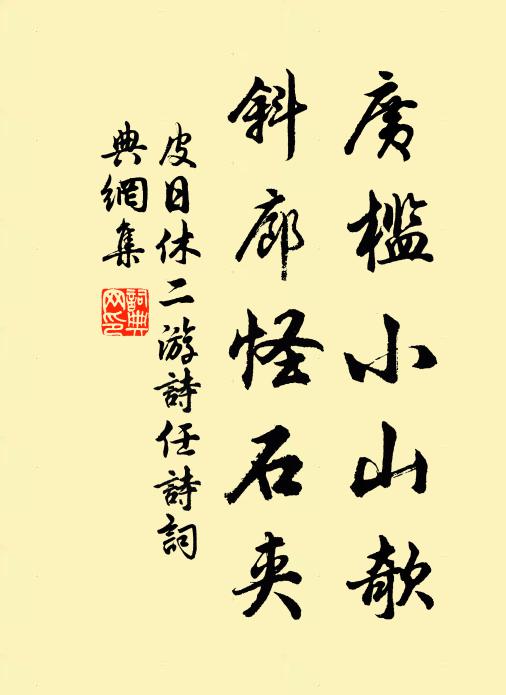 廣檻小山欹
斜廊怪石夾
皮日休二游詩任詩詞
典網集
詞典網印